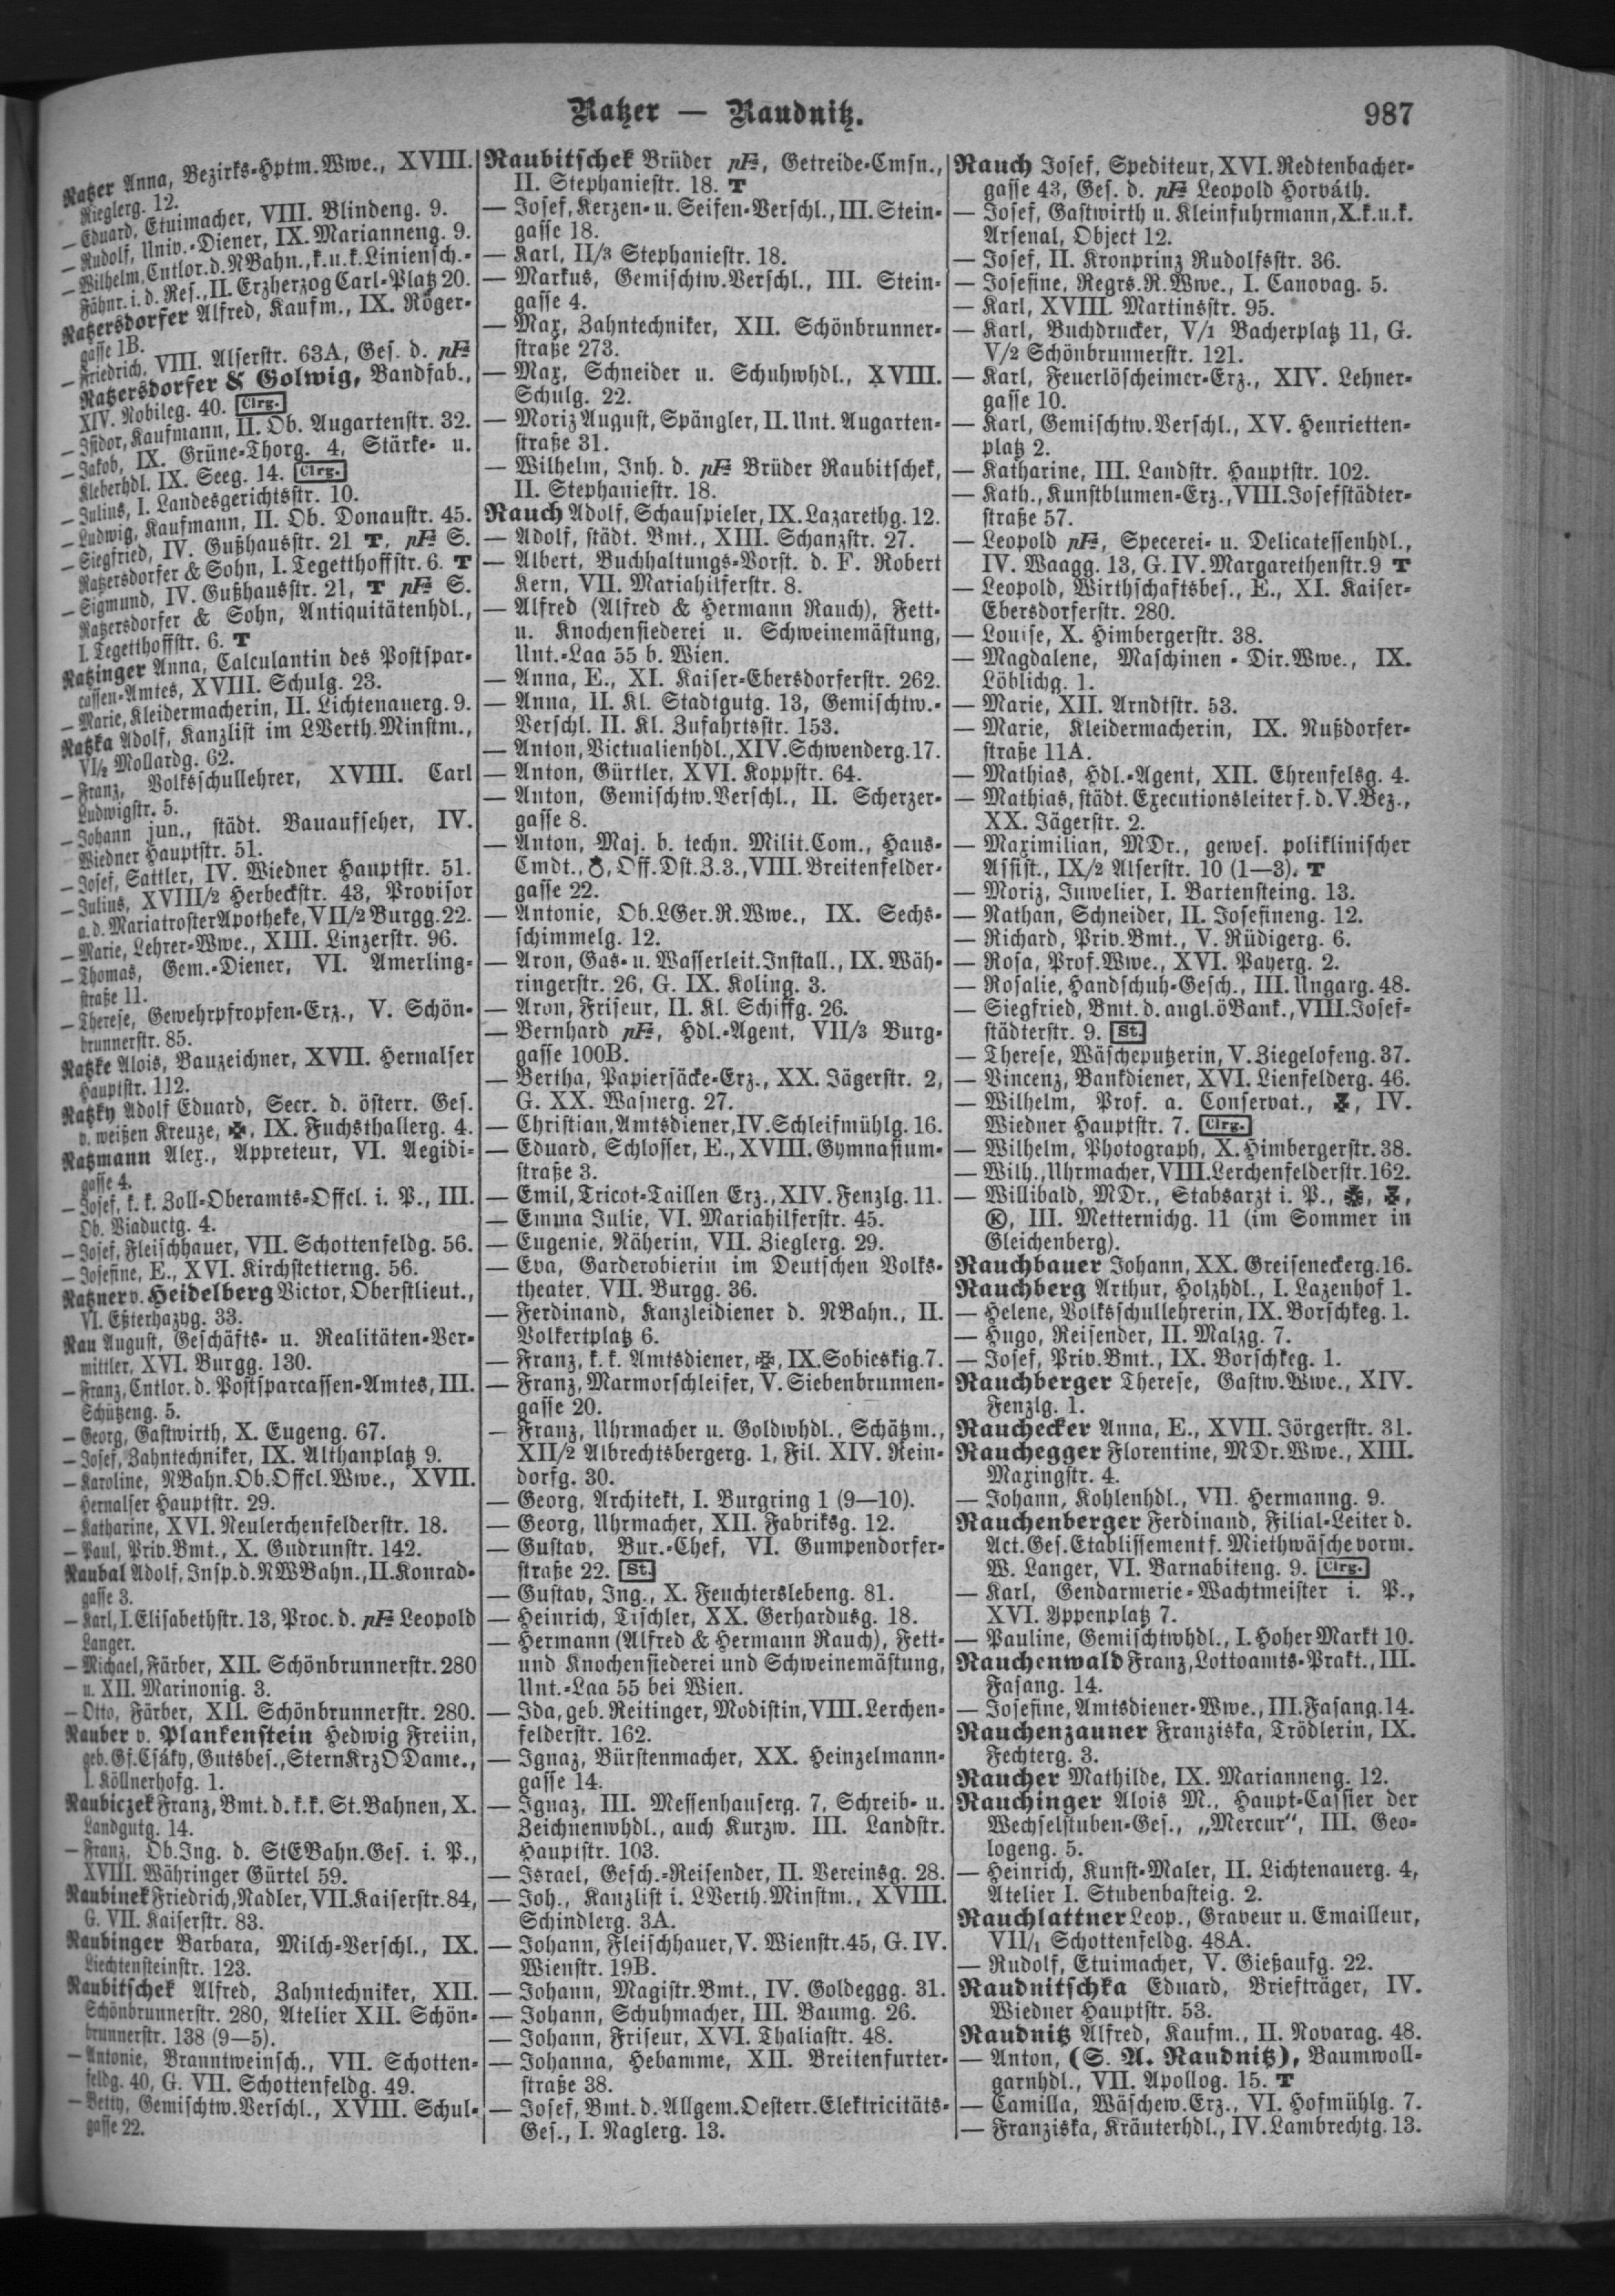 Ratzer — Raudnitz.
987
Ratzer Anna, Bezirks-Hptm.Wwe., XVIII.
Rieglerg. 12.
— Eduard, Etuimacher, VIII. Blindeng. 9.
— Rudolf, Univ.-Diener, IX. Marianneng. 9.
— Wilhelm, Cntlor. d. NBahn., k. u. k. Liniensch.-
Fähnr. i. d. Res., II. Erzherzog Carl-Platz 20.
Ratzersdorfer Alfred, Kaufm., IX. Röger-
gasse 1B.
— Friedrich, VIII. Alserstr. 63A, Ges. d. pFa
Ratzersdorfer & Golwig, Bandfab.,
XIV. Nobileg. 40. Clrg.
— Isidor, Kaufmann, II. Ob. Augartenstr. 32.
— Jakob, IX. Grüne-Thorg. 4, Stärke- u.
Kleberhdl. IX. Seeg. 14. Clrg.
— Julius, I. Landesgerichtsstr. 10.
— Ludwig, Kaufmann, II. Ob. Donaustr. 45.
— Siegfried, IV. Gußhausstr. 21 T, pFa S.
Ratzersdorfer & Sohn, I. Tegetthoffstr. 6. T
— Sigmund, IV. Gußhausstr. 21, T pFa S.
Ratzersdorfer & Sohn, Antiquitätenhdl.,
I. Tegetthoffstr. 6. T
Ratzinger Anna, Calculantin des Postspar-
cassen-Amtes, XVIII. Schulg. 23.
— Marie, Kleidermacherin, II. Lichtenauerg. 9.
Ratzka Adolf, Kanzlist im LVerth.Minstm.,
VI/2 Mollardg. 62.
— Franz, Volksschullehrer, XVIII. Carl
Ludwigstr. 5.
— Johann jun., städt. Bauaufseher, IV.
Wiedner Hauptstr. 51.
— Josef, Sattler, IV. Wiedner Hauptstr. 51.
— Julius, XVIII/2 Herbeckstr. 43, Provisor
a. d. Mariatroster Apotheke, VII/2 Burgg. 22.
— Marie, Lehrer-Wwe., XIII. Linzerstr. 96.
— Thomas, Gem.-Diener, VI. Amerling-
straße 11.
— Therese, Gewehrpfropfen-Erz., V. Schön-
brunnerstr. 85.
Ratzke Alois, Bauzeichner, XVII. Hernalser
Hauptstr. 112.
Ratzky Adolf Eduard, Secr. d. österr. Ges.
v. weißen Kreuze, ✠, IX. Fuchsthallerg. 4.
Ratzmann Alex., Appreteur, VI. Aegidi-
gasse 4.
— Josef, k. k. Zoll-Oberamts-Offcl. i. P., III.
Ob. Viaductg. 4.
— Josef, Fleischhauer, VII. Schottenfeldg. 56.
— Josefine, E., XVI. Kirchstetterng. 56.
Ratzner v. Heidelberg Victor, Oberstlieut.,
VI. Eßterhazyg. 33.
Rau August, Geschäfts- u. Realitäten-Ver-
mittler, XVI. Burgg. 130.
— Franz, Cntlor. d. Postsparcassen-Amtes, III.
Schützeng. 5.
— Georg, Gastwirth, X. Eugeng. 67.
— Josef, Zahntechniker, IX. Althanplatz 9.
— Karoline, NBahn.Ob.Offcl.Wwe., XVII.
Hernalser Hauptstr. 29.
— Katharine, XVI. Neulerchenfelderstr. 18.
— Paul, Priv.Bmt., X. Gudrunstr. 142.
Raubal Adolf, Insp. d. NWBahn., II. Konrad-
gasse 3.
— Karl, I. Elisabethstr. 13, Proc. d. pFa Leopold
Langer.
— Michael, Färber, XII. Schönbrunnerstr. 280
u. XII. Marinonig. 3.
— Otto, Färber, XII. Schönbrunnerstr. 280.
Rauber v. Plankenstein Hedwig Freiin,
geb. Gf. Csáky, Gutsbes., SternKrzODame.,
I. Köllnerhofg. 1.
Raubiczek Franz, Bmt. d. k. k. St.Bahnen, X.
Landgutg. 14.
— Franz, Ob.Ing. d. StEBahn.Ges. i. P.,
XVIII. Währinger Gürtel 59.
Raubinek Friedrich, Nadler, VII. Kaiserstr. 84,
G. VII. Kaiserstr. 83.
Raubinger Barbara, Milch-Verschl., IX.
Liechtensteinstr. 123.
Raubitschek Alfred, Zahntechniker, XII.
Schönbrunnerstr. 280, Atelier XII. Schön-
brunnerstr. 138 (9—5).
— Antonie, Branntweinsch., VII. Schotten-
feldg. 40, G. VII. Schottenfeldg. 49.
— Betty, Gemischtw.Verschl., XVIII. Schul-
gasse 22.
Raubitschek Brüder pFa, Getreide-Cmsn.,
II. Stephaniestr. 18. T
— Josef, Kerzen- u. Seifen-Verschl., III. Stein-
gasse 18.
— Karl, II/3 Stephaniestr. 18.
— Markus, Gemischtw.Verschl., III. Stein-
gasse 4.
— Max, Zahntechniker, XII. Schönbrunner-
straße 273.
— Max, Schneider u. Schuhwhdl., XVIII.
Schulg. 22.
— Moriz August, Spängler, II. Unt. Augarten-
straße 31.
— Wilhelm, Inh. d. pFa Brüder Raubitschek,
II. Stephaniestr. 18.
Rauch Adolf, Schauspieler, IX. Lazarethg. 12.
— Adolf, städt. Bmt., XIII. Schanzstr. 27.
— Albert, Buchhaltungs-Vorst. d. F. Robert
Kern, VII. Mariahilferstr. 8.
— Alfred (Alfred & Hermann Rauch), Fett-
u. Knochensiederei u. Schweinemästung,
Unt.-Laa 55 b. Wien.
— Anna, E., XI. Kaiser-Ebersdorferstr. 262.
— Anna, II. Kl. Stadtgutg. 13, Gemischtw.-
Verschl. II. Kl. Zufahrtsstr. 153.
— Anton, Victualienhdl., XIV. Schwenderg. 17.
— Anton, Gürtler, XVI. Koppstr. 64.
— Anton, Gemischtw.Verschl., II. Scherzer-
gasse 8.
— Anton, Maj. b. techn. Milit.Com., Haus-
Cmdt., Off.Dst.Z.3., VIII. Breitenfelder-
gasse 22.
— Antonie, Ob.LGer.R.Wwe., IX. Sechs-
schimmelg. 12.
— Aron, Gas- u. Wasserleit.Install., IX. Wäh-
ringerstr. 26, G. IX. Koling. 3.
— Aron, Friseur, II. Kl. Schiffg. 26.
— Bernhard pFa, Hdl.-Agent, VII/3 Burg-
gasse 100B.
— Bertha, Papiersäcke-Erz., XX. Jägerstr. 2,
G. XX. Wasnerg. 27.
— Christian, Amtsdiener, IV. Schleifmühlg. 16.
— Eduard, Schlosser, E., XVIII. Gymnasium-
straße 3.
— Emil, Tricot-Taillen Erz., XIV. Fenzlg. 11.
— Emma Julie, VI. Mariahilferstr. 45.
— Eugenie, Näherin, VII. Zieglerg. 29.
— Eva, Garderobierin im Deutschen Volks-
theater, VII. Burgg. 36.
— Ferdinand, Kanzleidiener d. NBahn., II.
Volkertplatz 6.
— Franz, k. k. Amtsdiener, ✠, IX. Sobieskig. 7.
— Franz, Marmorschleifer, V. Siebenbrunnen-
gasse 20.
— Franz, Uhrmacher u. Goldwhdl., Schätzm.,
XII/2 Albrechtsbergerg. 1, Fil. XIV. Rein-
dorfg. 30.
— Georg, Architekt, I. Burgring 1 (9—10).
— Georg, Uhrmacher, XII. Fabriksg. 12.
— Gustav, Bur.-Chef, VI. Gumpendorfer-
straße 22. St.
— Gustav, Ing., X. Feuchterslebeng. 81.
— Heinrich, Tischler, XX. Gerhardusg. 18.
— Hermann (Alfred & Hermann Rauch), Fett-
und Knochensiederei und Schweinemästung,
Unt.-Laa 55 bei Wien.
— Ida, geb. Reitinger, Modistin, VIII. Lerchen-
felderstr. 162.
— Ignaz, Bürstenmacher, XX. Heinzelmann-
gasse 14.
— Ignaz, III. Messenhauserg. 7, Schreib- u.
Zeichnenwhdl., auch Kurzw. III. Landstr.
Hauptstr. 103.
— Israel, Gesch.-Reisender, II. Vereinsg. 28.
— Joh., Kanzlist i. LVerth.Minstm., XVIII.
Schindlerg. 3A.
— Johann, Fleischhauer, V. Wienstr. 45, G. IV.
Wienstr. 19B.
— Johann, Magistr.Bmt., IV. Goldeggg. 31.
— Johann, Schuhmacher, III. Baumg. 26.
— Johann, Friseur, XVI. Thaliastr. 48.
— Johanna, Hebamme, XII. Breitenfurter-
straße 38.
— Josef, Bmt. d. Allgem.Oesterr.Elektricitäts-
Ges., I. Naglerg. 13.
Rauch Josef, Spediteur, XVI. Redtenbacher-
gasse 43, Ges. d. pFa Leopold Horváth.
— Josef, Gastwirth u. Kleinfuhrmann, X. k. u. k.
Arsenal, Object 12.
— Josef, II. Kronprinz Rudolfsstr. 36.
— Josefine, Regrs.R.Wwe., I. Canovag. 5.
— Karl, XVIII. Martinsstr. 95.
— Karl, Buchdrucker, V/1 Bacherplatz 11, G.
V/2 Schönbrunnerstr. 121.
— Karl, Feuerlöscheimer-Erz., XIV. Lehner-
gasse 10.
— Karl, Gemischtw.Verschl., XV. Henrietten-
platz 2.
— Katharine, III. Landstr. Hauptstr. 102.
— Kath., Kunstblumen-Erz., VIII. Josefstädter-
straße 57.
— Leopold pFa, Specerei- u. Delicatessenhdl.,
IV. Waagg. 13, G. IV. Margarethenstr. 9 T
— Leopold, Wirthschaftsbes., E., XI. Kaiser-
Ebersdorferstr. 280.
— Louise, X. Himbergerstr. 38.
— Magdalene, Maschinen-Dir.Wwe., IX.
Löblichg. 1.
— Marie, XII. Arndtstr. 53.
— Marie, Kleidermacherin, IX. Nußdorfer-
straße 11A.
— Mathias, Hdl.-Agent, XII. Ehrenfelsg. 4.
— Mathias, städt. Executionsleiter f. d. V. Bez.,
XX. Jägerstr. 2.
— Maximilian, MDr., gewes. poliklinischer
Assist., IX/2 Alserstr. 10 (1—3). T
— Moriz, Juwelier, I. Bartensteing. 13.
— Nathan, Schneider, II. Josefineng. 12.
— Richard, Priv.Bmt., V. Rüdigerg. 6.
— Rosa, Prof.Wwe., XVI. Payerg. 2.
— Rosalie, Handschuh-Gesch., III. Ungarg. 48.
— Siegfried, Bmt. d. angl.öBank., VIII. Josef-
städterstr. 9. St.
— Therese, Wäscheputzerin, V. Ziegelofeng. 37.
— Vincenz, Bankdiener, XVI. Lienfelderg. 46.
— Wilhelm, Prof. a. Conservat., IV.
Wiedner Hauptstr. 7. Clrg.
— Wilhelm, Photograph, X. Himbergerstr. 38.
— Wilh., Uhrmacher, VIII. Lerchenfelderstr. 162.
— Willibald, MDr., Stabsarzt i. P.,
Ⓚ, III. Metternichg. 11 (im Sommer in
Gleichenberg).
Rauchbauer Johann, XX. Greiseneckerg. 16.
Rauchberg Arthur, Holzhdl., I. Lazenhof 1.
— Helene, Volksschullehrerin, IX. Borschkeg. 1.
— Hugo, Reisender, II. Malzg. 7.
— Josef, Priv.Bmt., IX. Borschkeg. 1.
Rauchberger Therese, Gastw.Wwe., XIV.
Fenzlg. 1.
Rauchecker Anna, E., XVII. Jörgerstr. 31.
Rauchegger Florentine, MDr.Wwe., XIII.
Maxingstr. 4.
— Johann, Kohlenhdl., VII. Hermanng. 9.
Rauchenberger Ferdinand, Filial-Leiter d.
Act.Ges.Etablissement f. Miethwäsche vorm.
W. Langer, VI. Barnabiteng. 9. Clrg.
— Karl, Gendarmerie-Wachtmeister i. P.,
XVI. Yppenplatz 7.
— Pauline, Gemischtwhdl., I. Hoher Markt 10.
Rauchenwald Franz, Lottoamts-Prakt., III.
Fasang. 14.
— Josefine, Amtsdiener-Wwe., III. Fasang. 14.
Rauchenzauner Franziska, Trödlerin, IX.
Fechterg. 3.
Raucher Mathilde, IX. Marianneng. 12.
Rauchinger Alois M., Haupt-Cassier der
Wechselstuben-Ges., „Mercur“, III. Geo-
logeng. 5.
— Heinrich, Kunst-Maler, II. Lichtenauerg. 4,
Atelier I. Stubenbasteig. 2.
Rauchlattner Leop., Graveur u. Emailleur,
VII/1 Schottenfeldg. 48A.
— Rudolf, Etuimacher, V. Gießaufg. 22.
Raudnitschka Eduard, Briefträger, IV.
Wiedner Hauptstr. 53.
Raudnitz Alfred, Kaufm., II. Novarag. 48.
— Anton, (S. A. Raudnitz), Baumwoll-
garnhdl., VII. Apollog. 15. T
— Camilla, Wäschew.Erz., VI. Hofmühlg. 7.
— Franziska, Kräuterhdl., IV. Lambrechtg. 13.